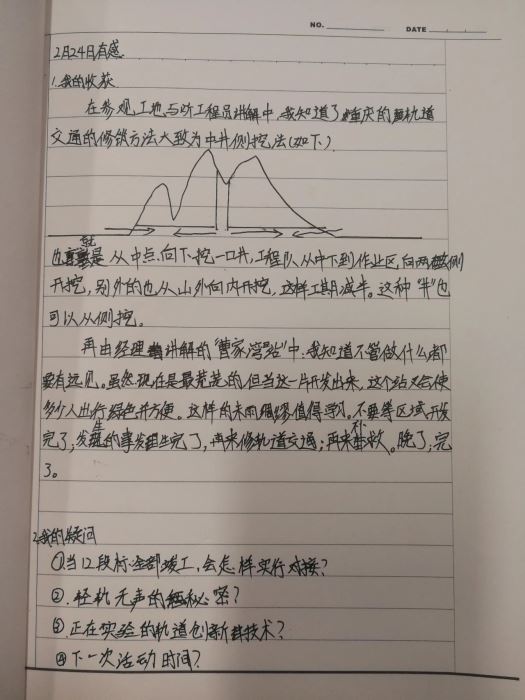 NO.
DATE
2月24日有感
1.我的收获
在参观工地与听工程员讲解中,我知道了重庆的轨道
交通的修筑方法大致为中井侧挖法(如下)
也就是从中点向下挖一口井,工程队从中下到作业区,向两侧
开挖,另外的也从山外向内开挖,这样工期减半。这种“井”也
可以从侧挖。
再由经理讲解的“曹家湾站”中,我知道不管做什么都
要有远见。虽然现在是最荒芜的,但当这一片开发出来,这个站又会使
多少人出行绿色并方便。这样的未雨绸缪值得学习。不要等区域开发
完了,发生的事发生完了,再来修轨道交通;再来补救。晚了,完
了。
2.我的疑问
①当12段标全部竣工,会怎样实行对接?
②.轻轨无声的秘密?
③.正在实验的轨道创新技术?
④下一次活动时间?